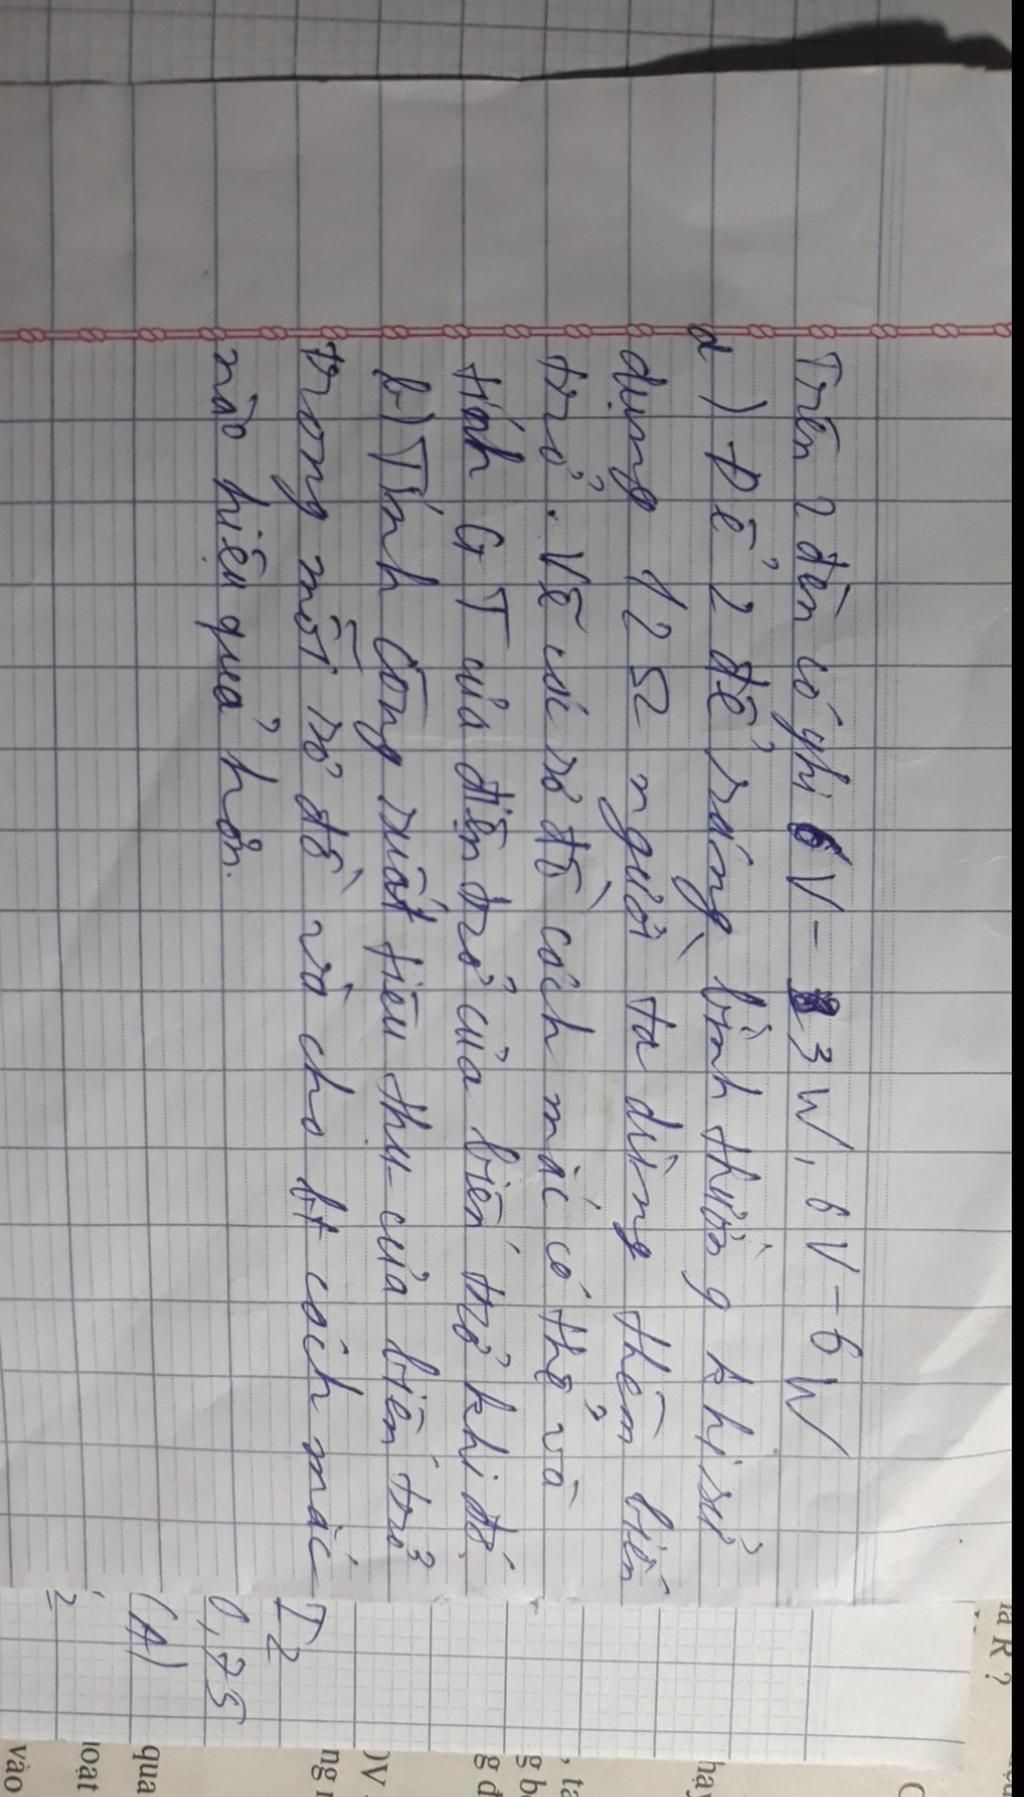 Trên 2 đèn có ghi 6V - 3W, 6V - 6W
a) Để 2 để ráng bình thường khi sử
dụng 12Ω người ta dùng thêm biến
trở. Vẽ các sơ đồ cách mắc có thể và
tính GT của điện trở của biến trở khi đó.
b) Tính công suất tiêu thụ của biến trở
trong mỗi sơ đồ và cho bt cách mắc
nào hiệu quả hơn.
I2
0,75
(A)
là R ?
hay
, ta
g b
g đ
)V
ng
qua
loạt
vào